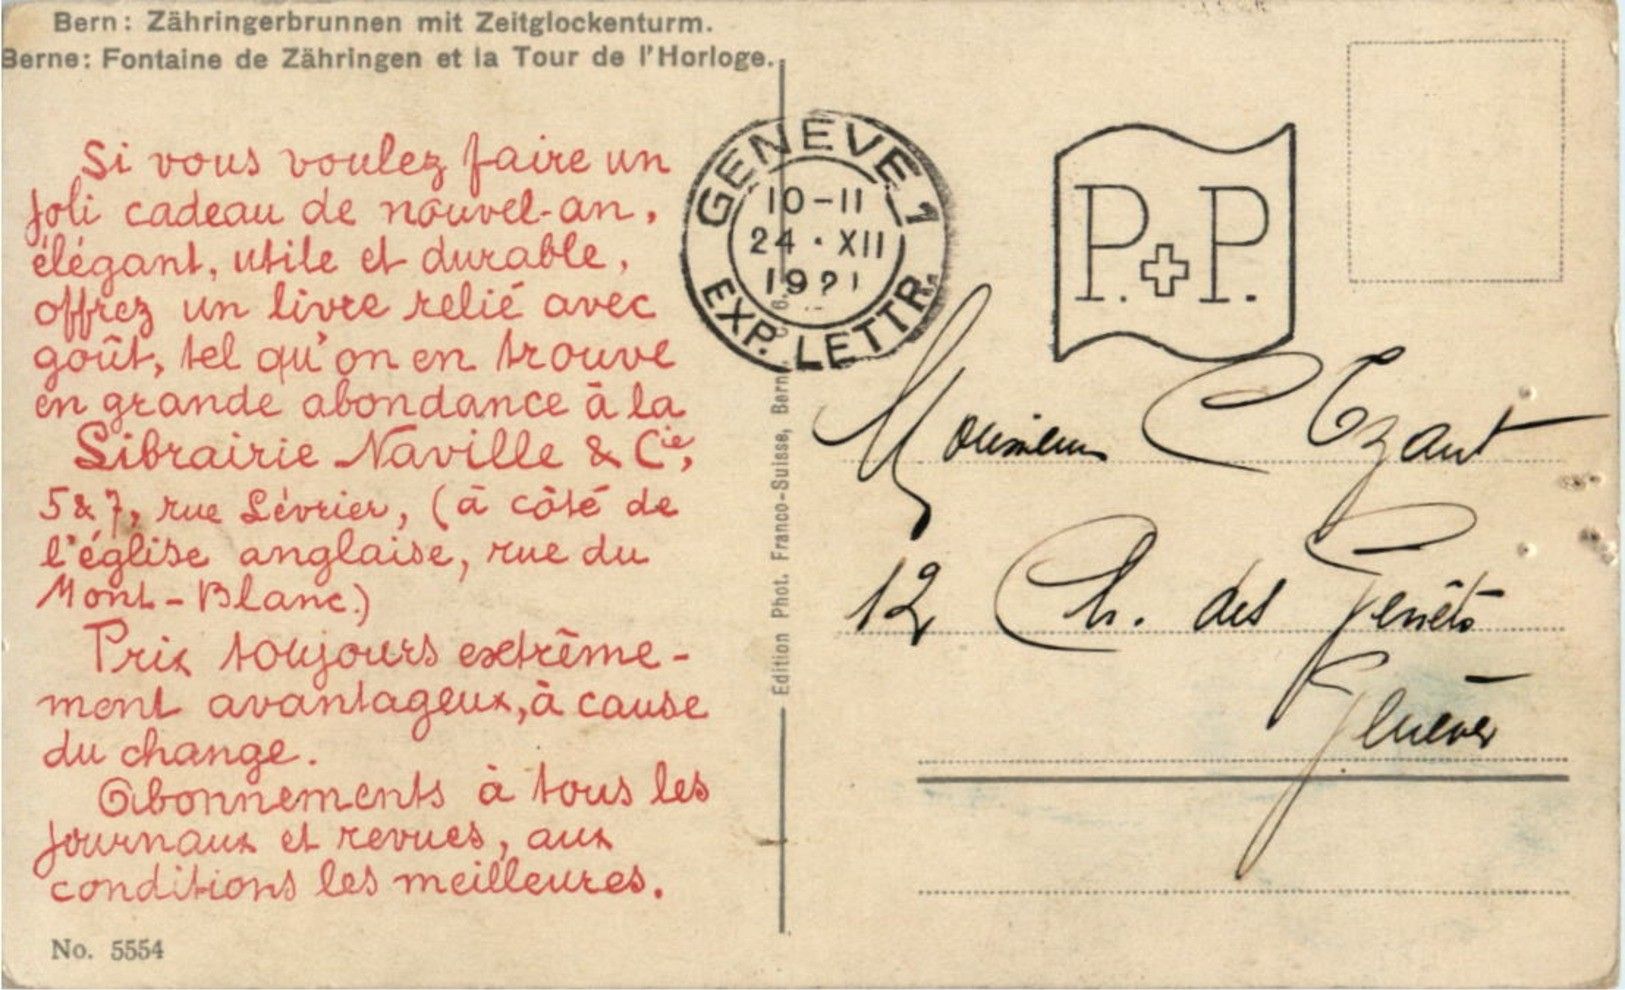 Bern: Zähringerbrunnen mit Zeitglockenturm.
Berne: Fontaine de Zähringen et la Tour de l'Horloge.
Si vous voulez faire un
joli cadeau de nouvel-an,
élégant, utile et durable,
offrez un livre relié avec
goût, tel qu'on en trouve
en grande abondance à la
Librairie Naville & Cie,
5 & 7, rue Lévrier, (à côté de
l'église anglaise, rue du
Mont-Blanc.)
Prix toujours extrême-
ment avantageux, à cause
du change.
Abonnements à tous les
journaux et revues, aux
conditions les meilleures.
No. 5554
Edition Phot. Franco-Suisse, Berne
GENEVE 1
10-11
24 · XII
1921
EXP. LETTR.
P.+P.
Monsieur
12 Ch. des Genêts
Genève